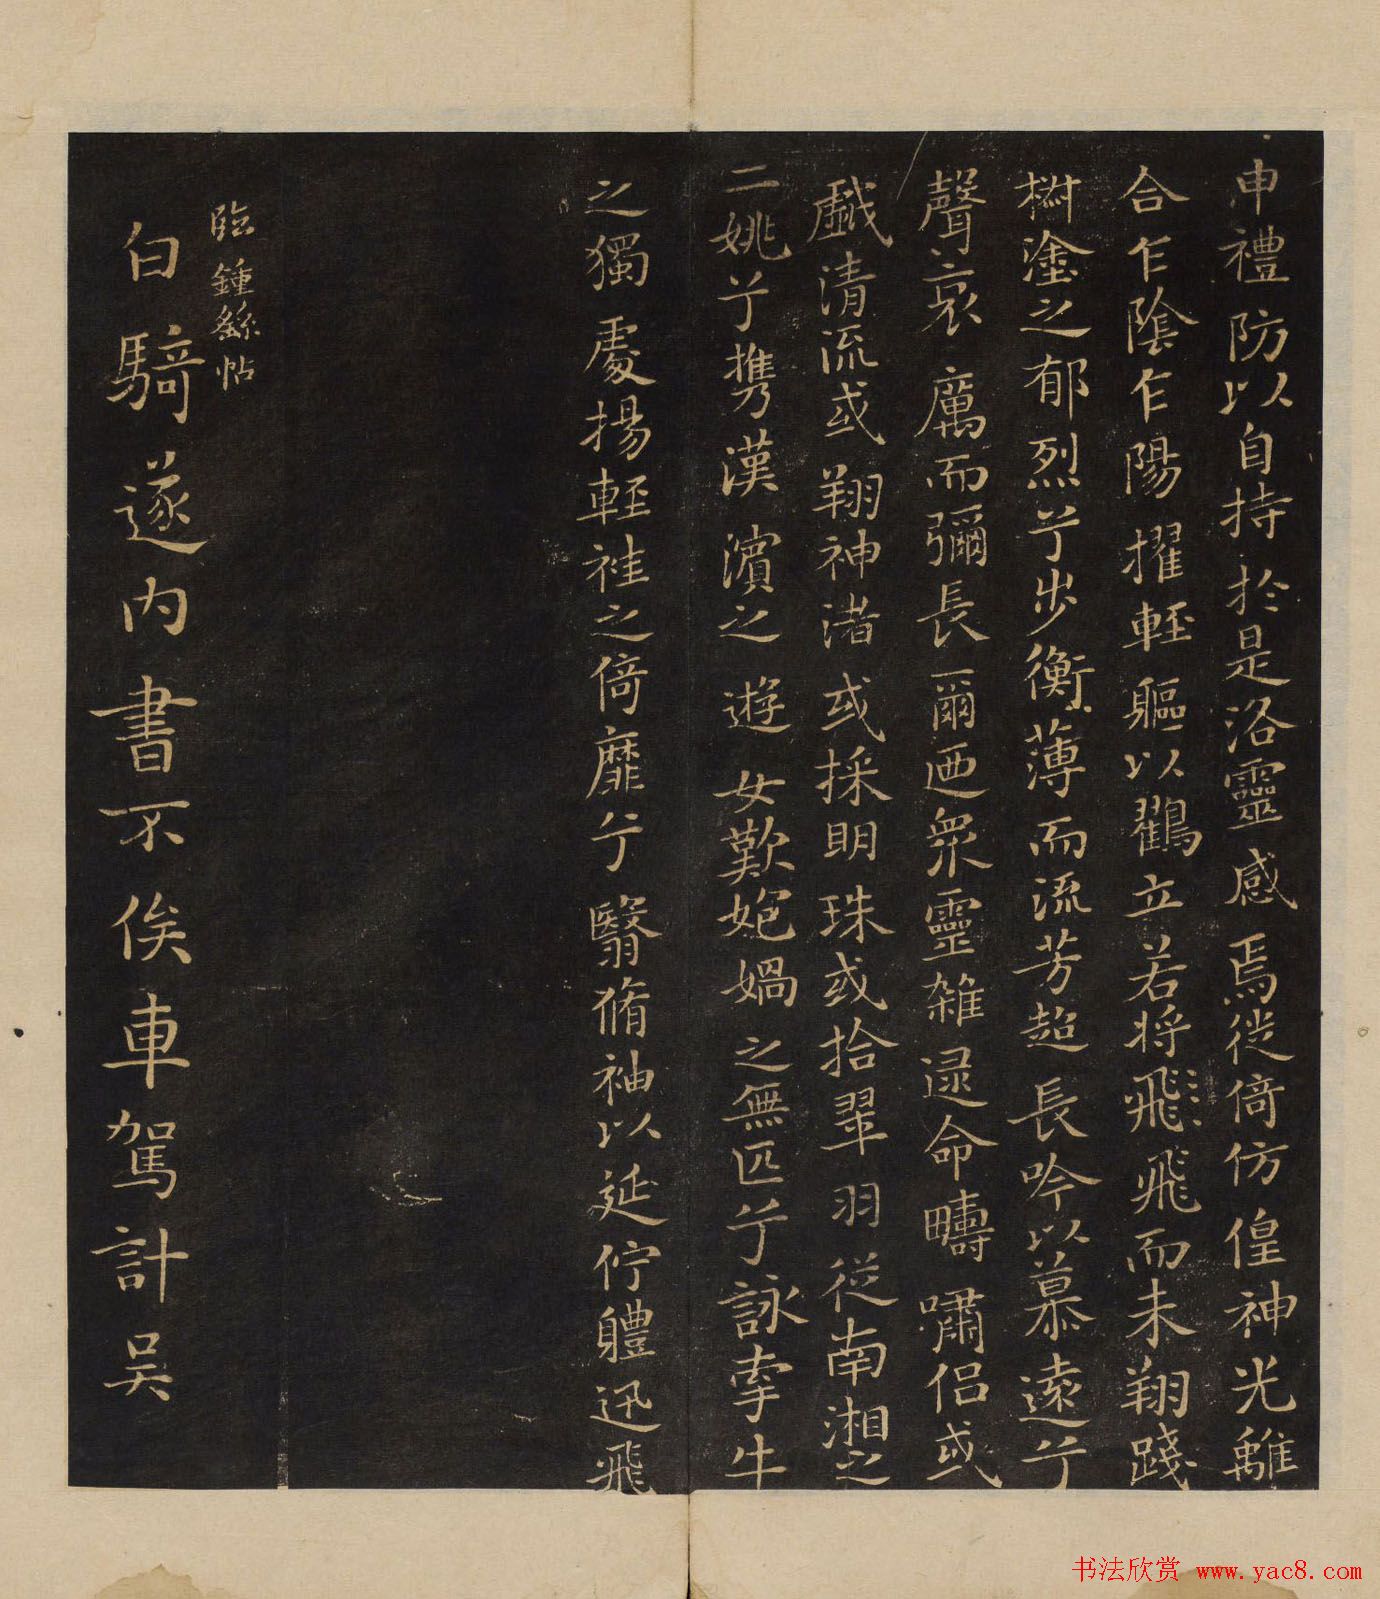 申禮防以自持於是洛靈感焉徙倚仿偟神光離
合乍陰乍陽擢輊軀以鸛立若将飛飛而未翔踐
椒塗之郁烈兮步衡薄而流芳超長吟以慕遠兮
聲哀厲而彌長爾迺衆靈雜遝命疇嘯侣或
戱清流或翔神渚或採明珠或拾翠羽從南湘之
二姚兮攜漢濱之遊女歎媤媧之無匹兮詠牽牛
之獨處揚輊袿之倚靡兮翳脩袖以延佇體迅飛
臨鍾繇帖
白騎遂内書不俟車駕計吴
书法欣赏 www.yac8.com